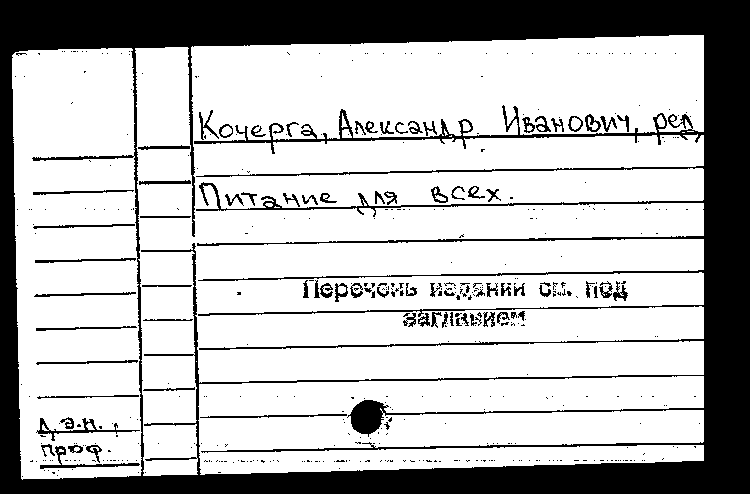 Кочерга, Александр Иванович, ред.
Питание для всех.
Перечень издании см. под
заглавием
д.э.н.,
проф.